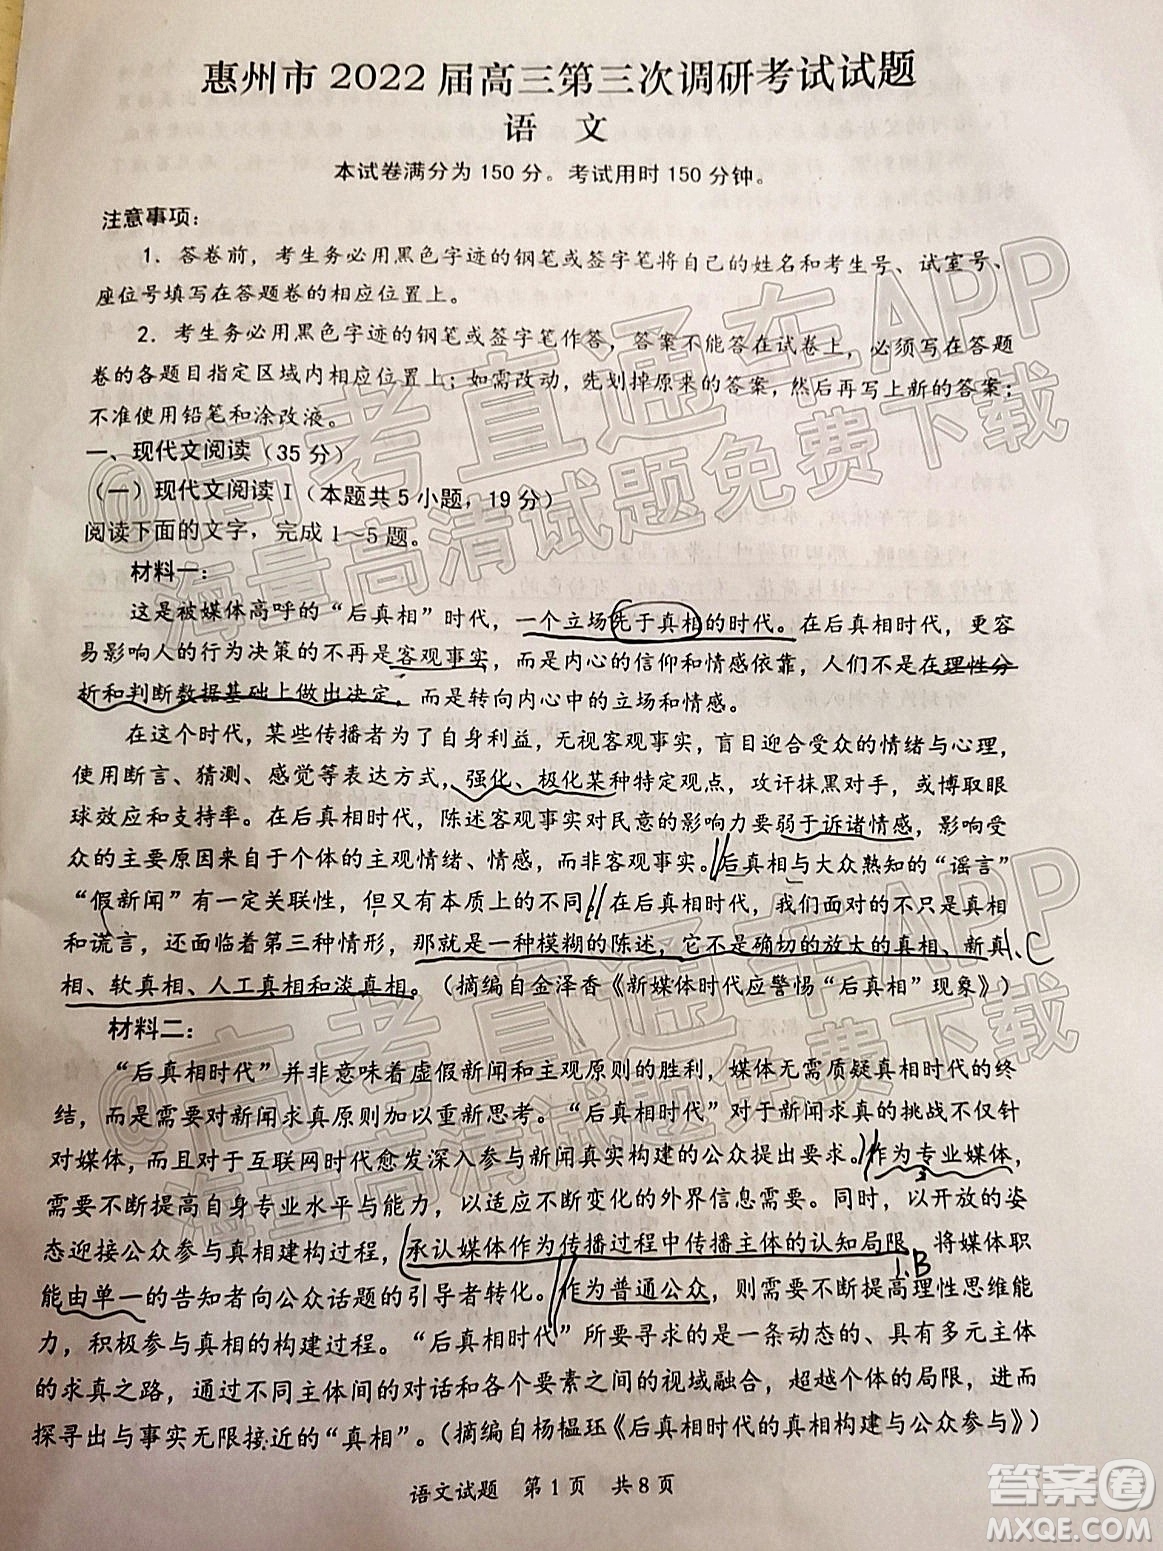 惠州市 2022 届高三第三次调研考试试题
语 文
本试卷满分为 150 分。考试用时 150 分钟。
注意事项:
1．答卷前，考生务必用黑色字迹的钢笔或签字笔将自己的姓名和考生号、试室号、
座位号填写在答题卷的相应位置上。
2．考生务必用黑色字迹的钢笔或签字笔作答，答案不能答在试卷上，必须写在答题
卷的各题目指定区域内相应位置上；如需改动，先划掉原来的答案，然后再写上新的答案；
不准使用铅笔和涂改液。
一、现代文阅读（35 分）
（一）现代文阅读Ⅰ（本题共 5 小题，19 分）
阅读下面的文字，完成 1～5 题。
材料一：
这是被媒体高呼的“后真相”时代，一个立场先于真相的时代。在后真相时代，更容
易影响人的行为决策的不再是客观事实，而是内心的信仰和情感依靠，人们不是在理性分
析和判断数据基础上做出决定，而是转向内心中的立场和情感。
在这个时代，某些传播者为了自身利益，无视客观事实，盲目迎合受众的情绪与心理，
使用断言、猜测、感觉等表达方式，强化、极化某种特定观点，攻讦抹黑对手，或博取眼
球效应和支持率。在后真相时代，陈述客观事实对民意的影响力要弱于诉诸情感，影响受
众的主要原因来自于个体的主观情绪、情感，而非客观事实。后真相与大众熟知的“谣言”
“假新闻”有一定关联性，但又有本质上的不同。在后真相时代，我们面对的不只是真相
和谎言，还面临着第三种情形，那就是一种模糊的陈述，它不是确切的放大的真相、新真
1.C
相、软真相、人工真相和淡真相。（摘编自金泽香《新媒体时代应警惕“后真相”现象》）
材料二：
“后真相时代”并非意味着虚假新闻和主观原则的胜利，媒体无需质疑真相时代的终
结，而是需要对新闻求真原则加以重新思考。“后真相时代”对于新闻求真的挑战不仅针
对媒体，而且对于互联网时代愈发深入参与新闻真实构建的公众提出要求。作为专业媒体，
需要不断提高自身专业水平与能力，以适应不断变化的外界信息需要。同时，以开放的姿
态迎接公众参与真相建构过程，承认媒体作为传播过程中传播主体的认知局限，将媒体职
1.B
能由单一的告知者向公众话题的引导者转化。作为普通公众，则需要不断提高理性思维能
力，积极参与真相的构建过程。“后真相时代”所要寻求的是一条动态的、具有多元主体
的求真之路，通过不同主体间的对话和各个要素之间的视域融合，超越个体的局限，进而
探寻出与事实无限接近的“真相”。（摘编自杨榅珏《后真相时代的真相构建与公众参与》）
语文试题 第 1 页 共 8 页
@高考直通车APP
海量高清试题免费下载
@高考直通车APP
海量高清试题免费下载
答案圈
MXQE.COM